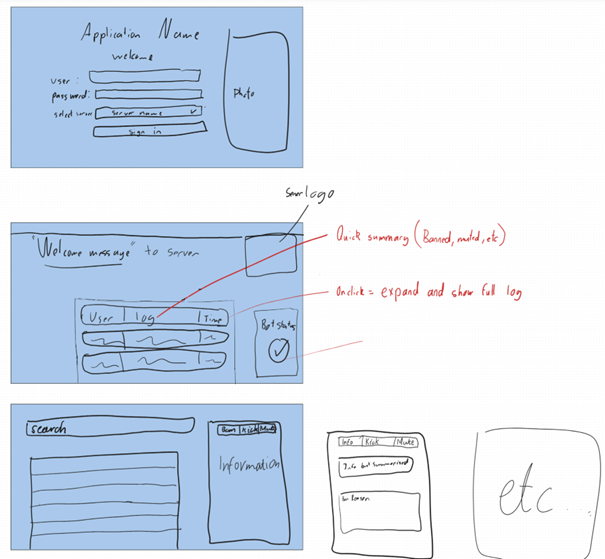 Application Name
welcome
user:
password:
select server
server name
sign in
Photo
Server logo
"Welcome message" to server
Quick summary (Banned, muted, etc)
Onclick = expand and show full log
User log Time
Bot status
search
Ban Kick Mute
Information
Info Kick Mute
Info but summarized
Reason
etc...